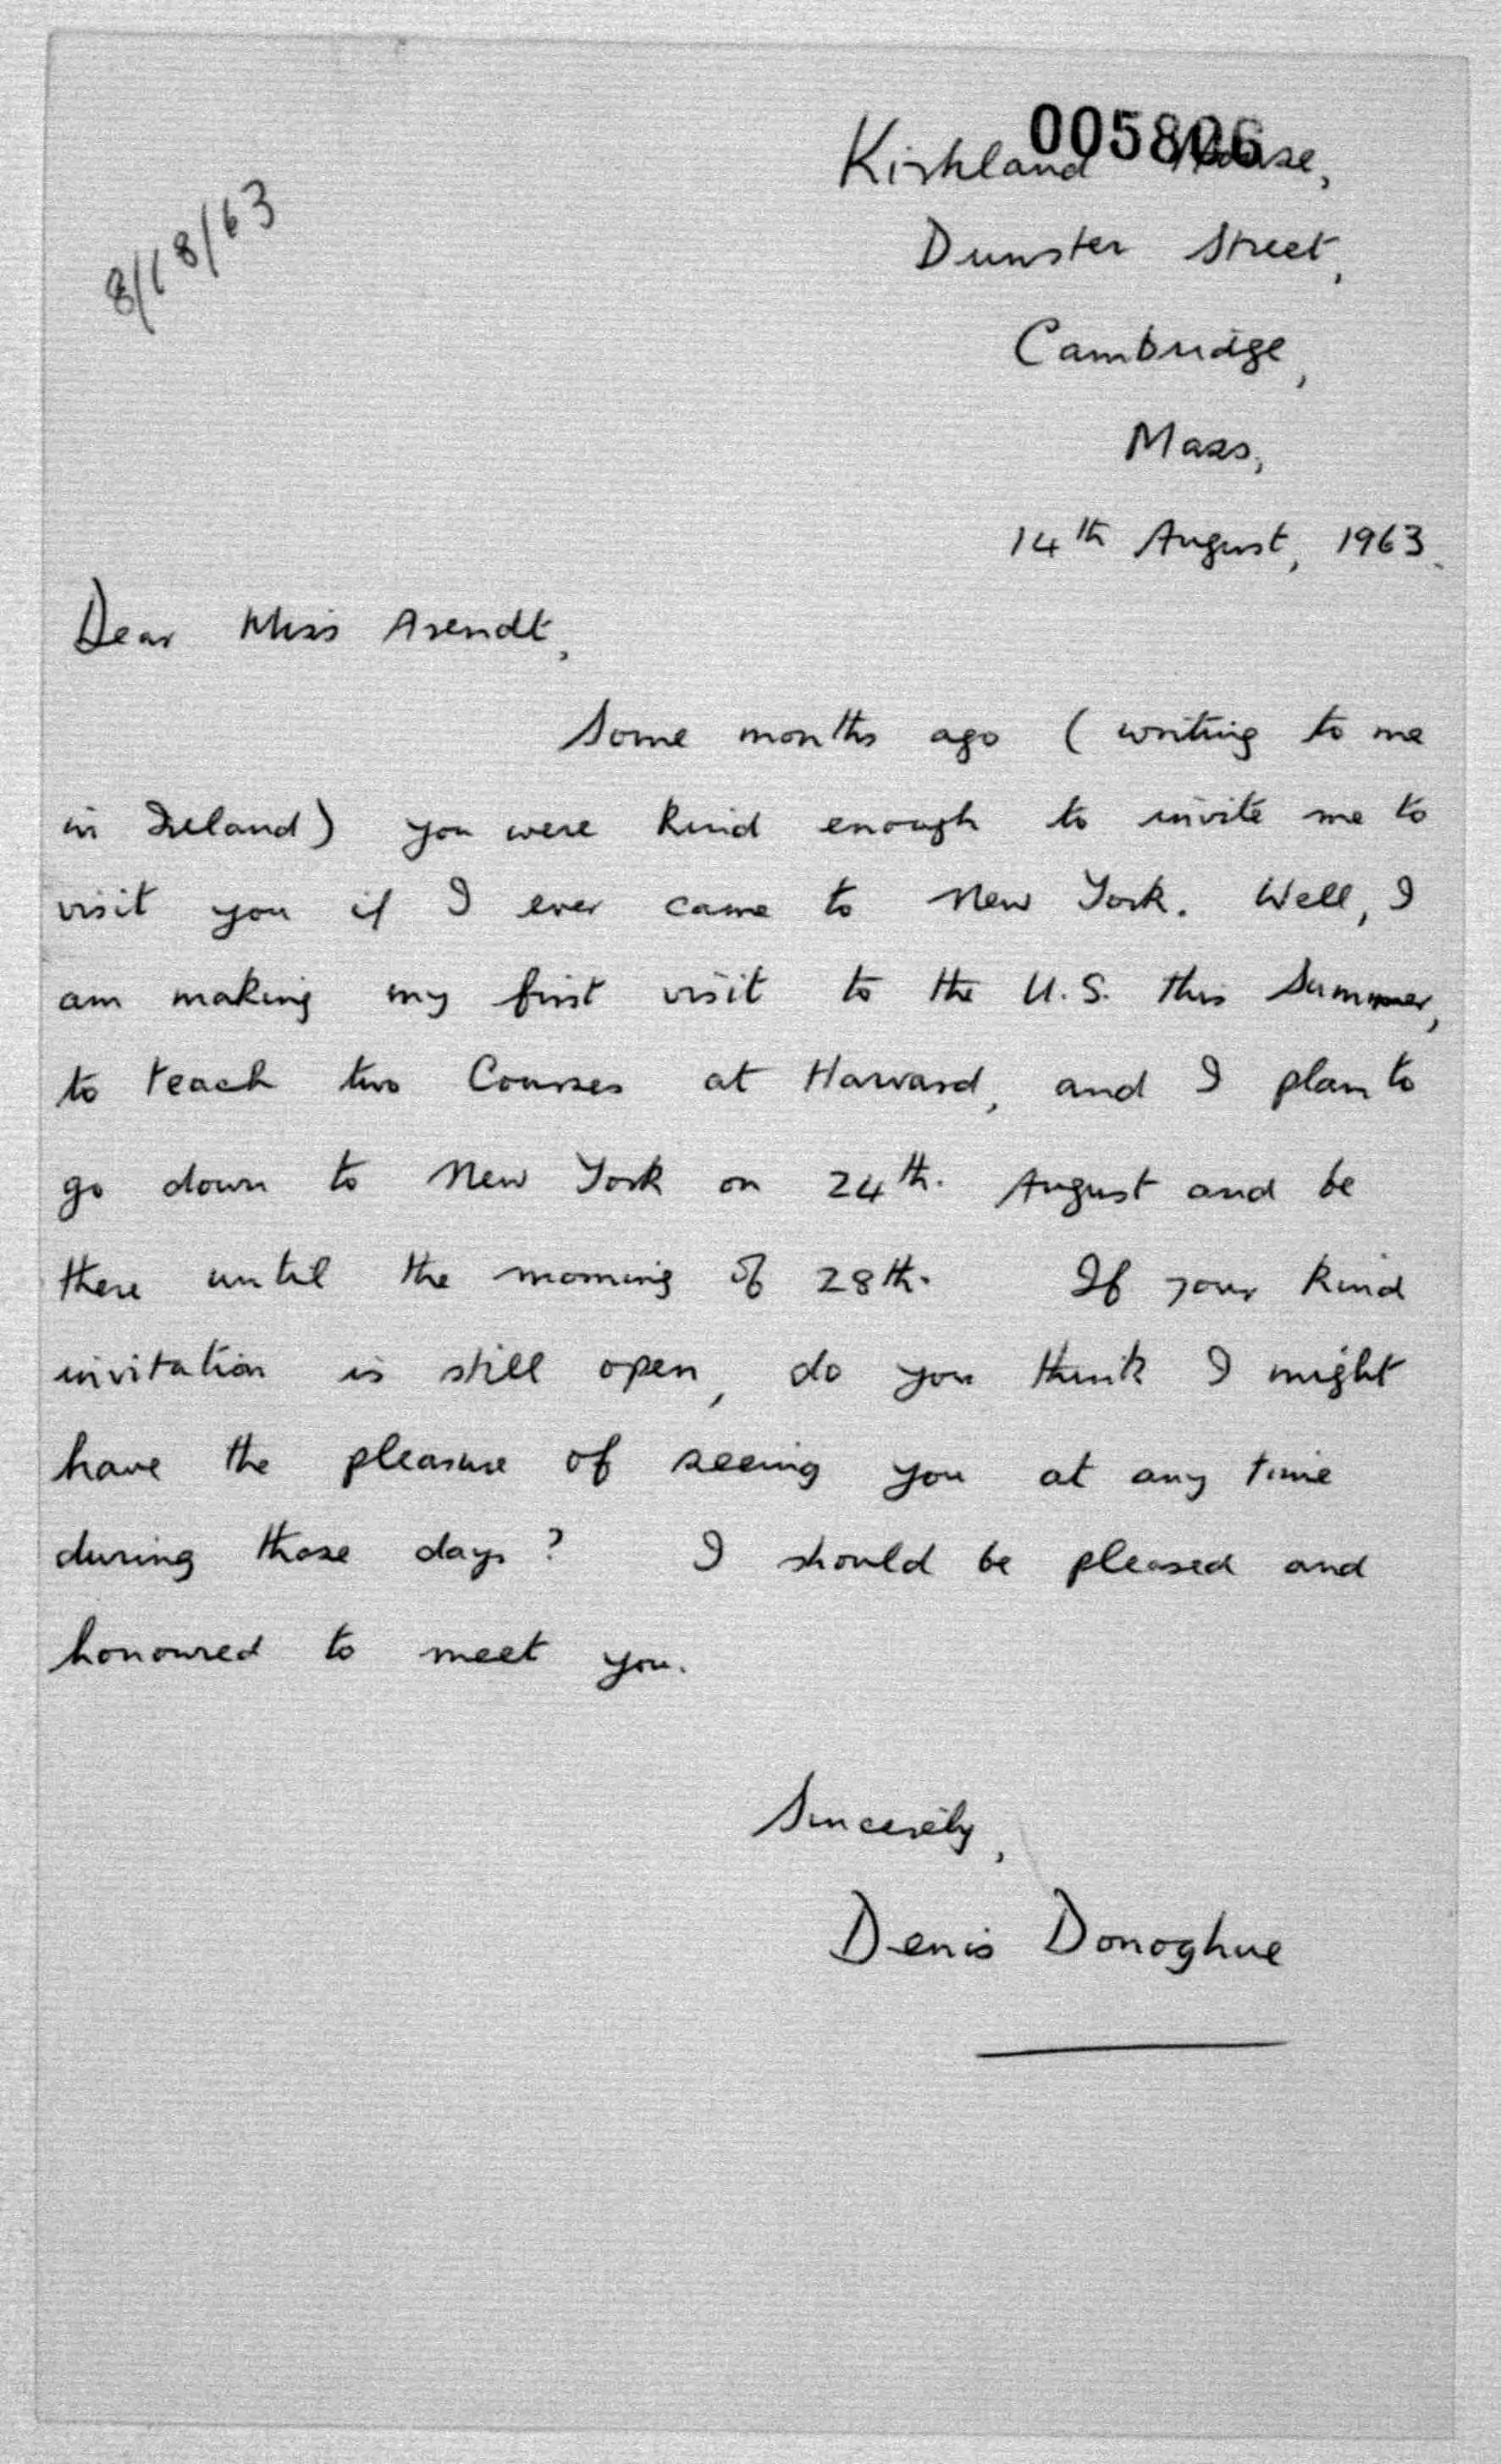 005806
Kirkland House,
8/18/63
Dunster Street,
Cambridge,
Mass,
14th August, 1963.
Dear Miss Arendt,
Some months ago (writing to me
in Ireland) you were kind enough to invite me to
visit you if I ever came to New York. Well, I
am making my first visit to the U.S. this Summer,
to teach two Courses at Harvard, and I plan to
go down to New York on 24th. August and be
there until the morning of 28th. If your kind
invitation is still open, do you think I might
have the pleasure of seeing you at any time
during those days? I should be pleased and
honoured to meet you.
Sincerely,
Denis Donoghue